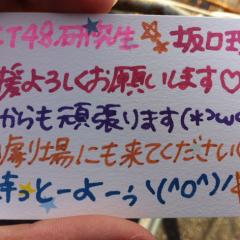 CT48研究生 坂口理
援よろしくお願いします♡
からも頑張ります(*>ω<
劇場にも来てください
待っとーよーぅヽ(^o^)ノ